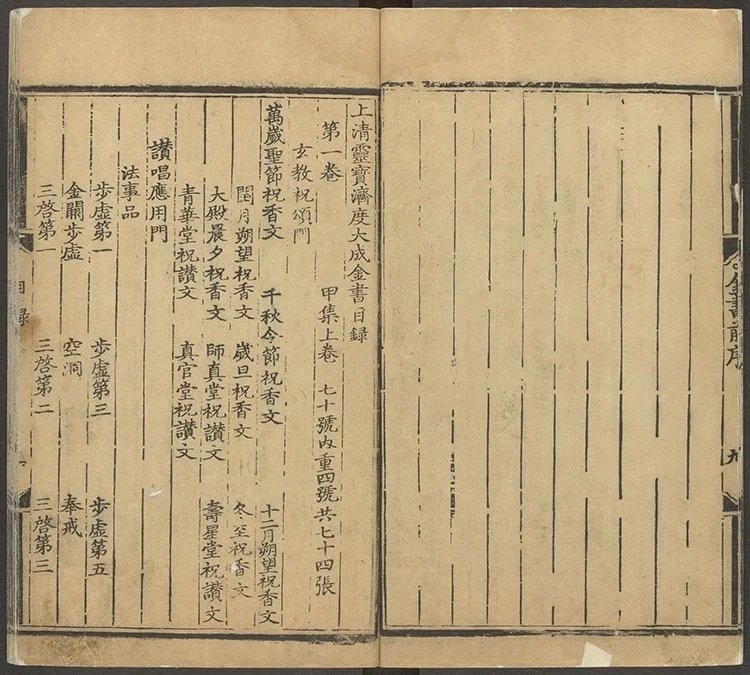 金書前序
九
上清靈寶濟度大成金書目錄
第一卷 甲集上卷 七十號內重四號共七十四張
玄教祝頌門
萬歲聖節祝香文 千秋令節祝香文 十二月朔望祝香文
閏月朔望祝香文 歲旦祝香文 冬至祝香文
大殿晨夕祝香文 師真堂祝讚文 壽星堂祝讚文
青華堂祝讚文 真官堂祝讚文
讚唱應用門
法事品
步虛第一 步虛第三 步虛第五
金闕步虛 空洞 奉戒
三啓第一 三啓第二 三啓第三
目錄